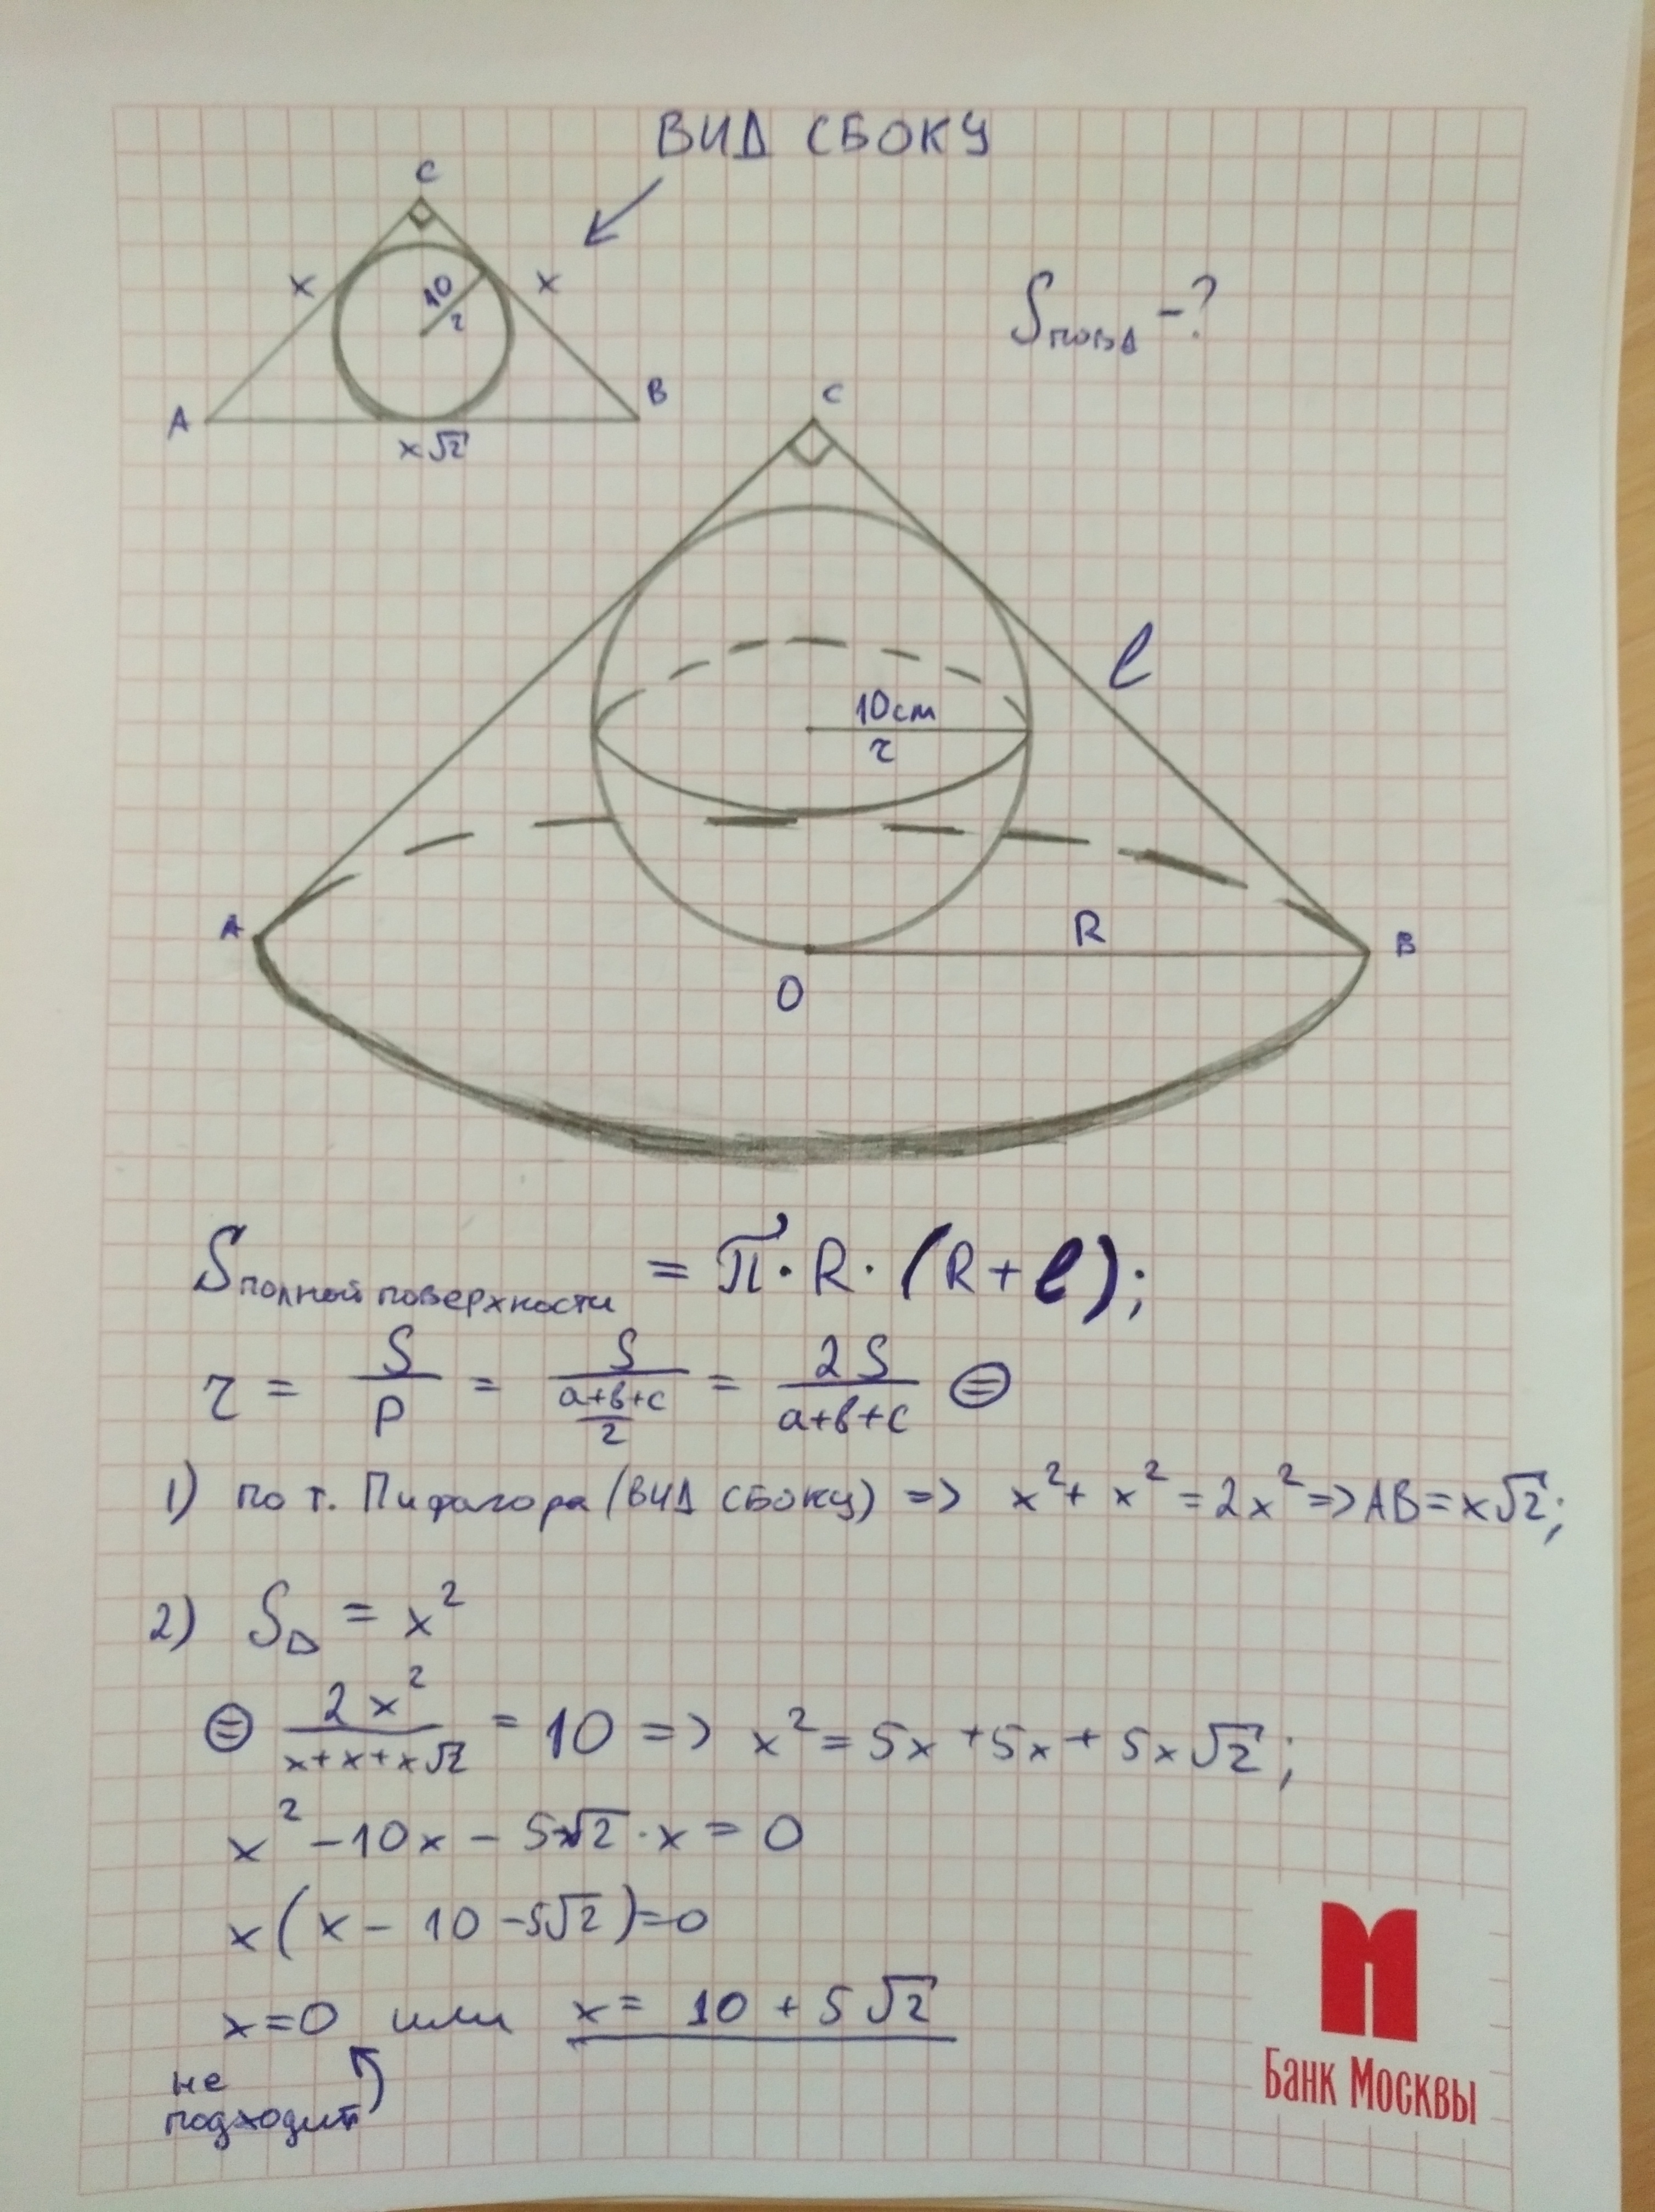 ВИД СБОКУ
C
x
10
r
x
A
B
x√2
Sповд -?
C
l
10см
r
A
R
B
O
Sполной поверхности = π · R · (R + l);
r = S/P = S/((a+b+c)/2) = 2S/(a+b+c) ⊜
1) по т. Пифагора (ВИД СБОКУ) => x² + x² = 2x² => AB = x√2;
2) S△ = x²
⊜ 2x²/(x+x+x√2) = 10 => x² = 5x + 5x + 5x√2;
x² - 10x - 5√2 · x = 0
x(x - 10 - 5√2) = 0
x = 0 или x = 10 + 5√2
не
подходит
Банк Москвы